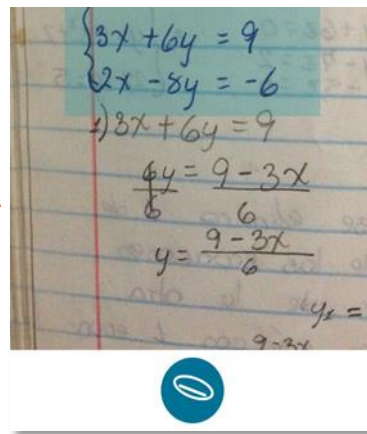 3x + 6y = 9
2x - 8y = -6
1) 3x + 6y = 9
6y = 9 - 3x
6 6
y = 9 - 3x
6
y₁ =
9 - 3x